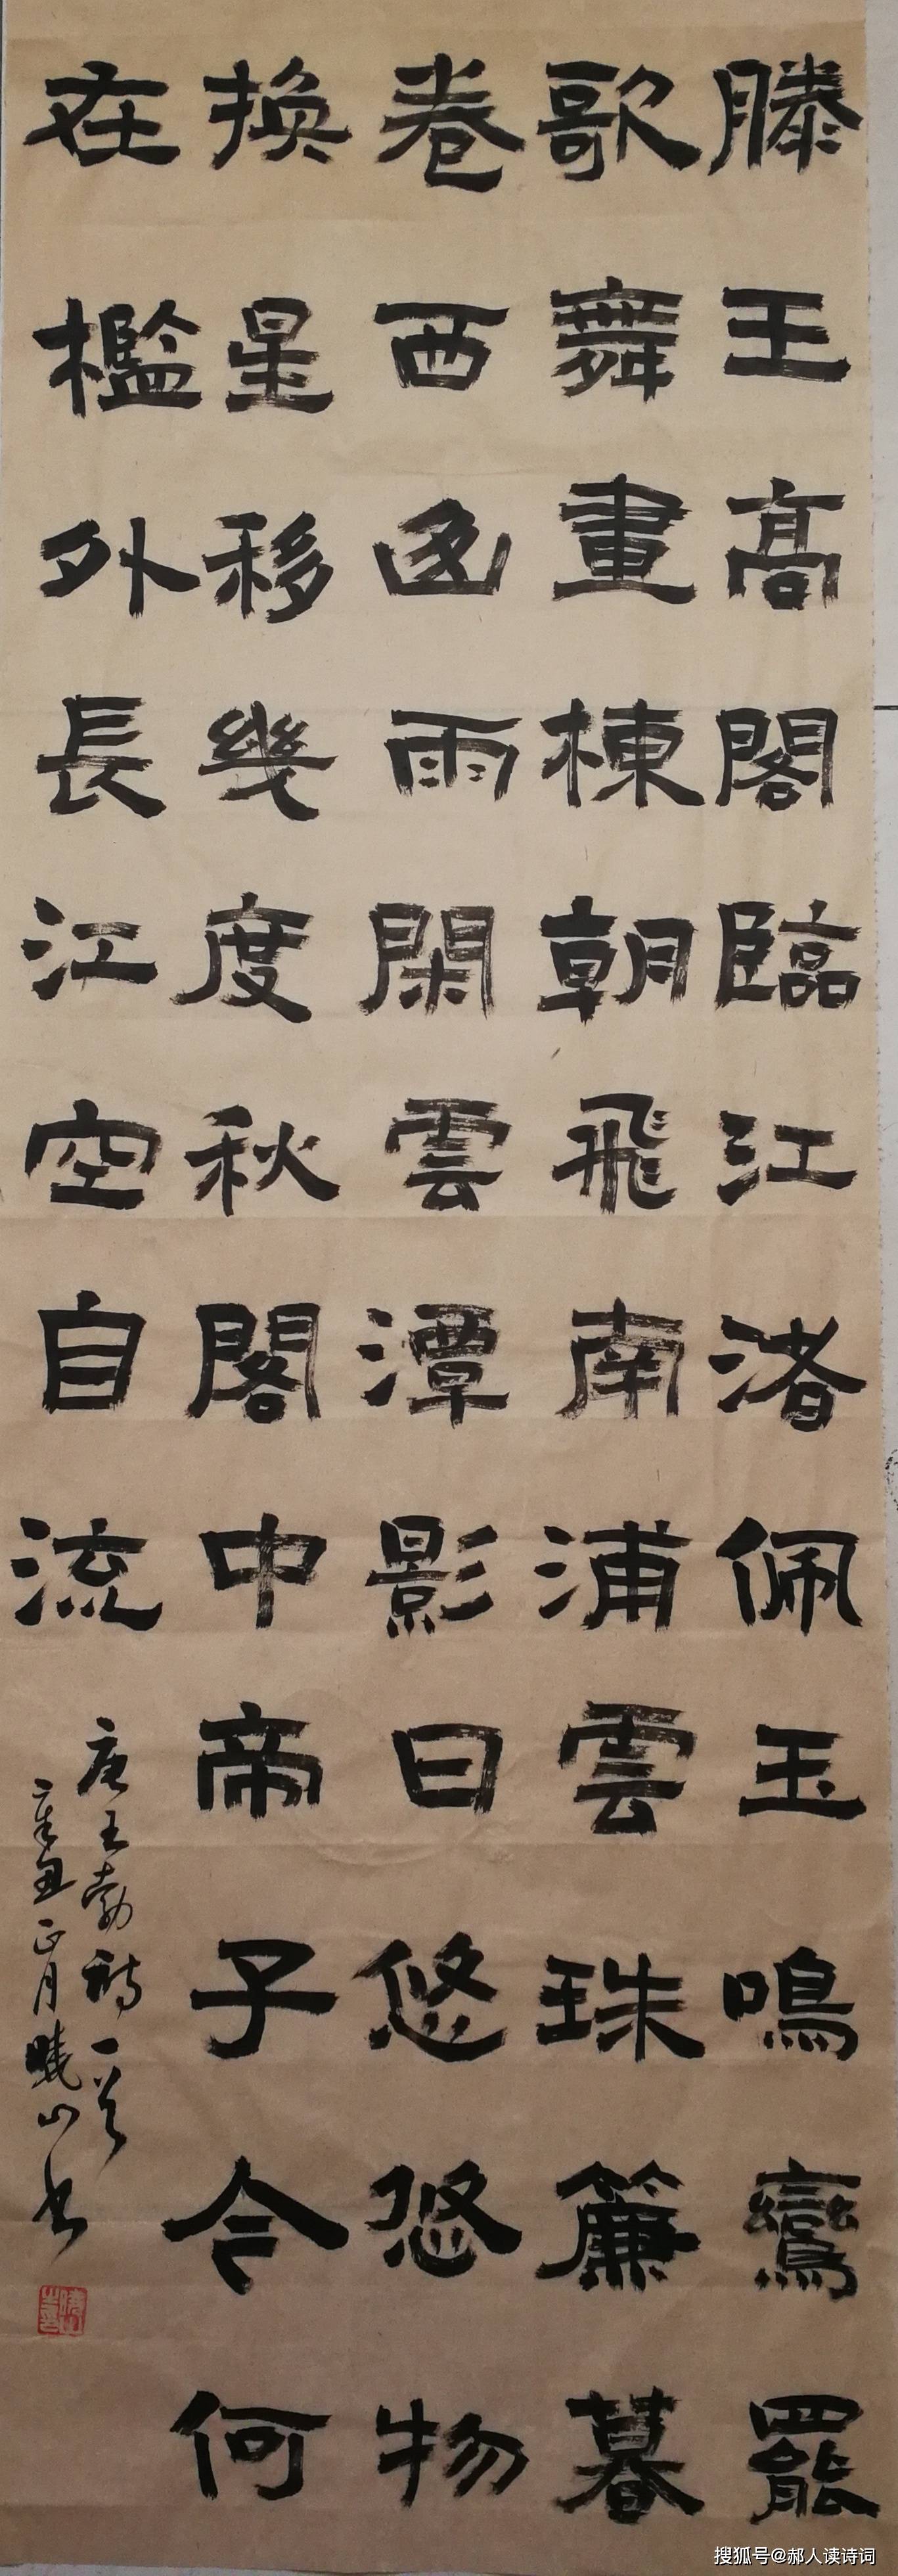 滕王高閣臨江渚佩玉鳴鸞罷
歌舞畫棟朝飛南浦雲珠簾暮
卷西雨閑雲潭影日悠悠物
換星移幾度秋閣中帝子今何
在檻外長江空自流
唐王勃詩一首
辛丑正月曉山書
搜狐号@郝人读诗词